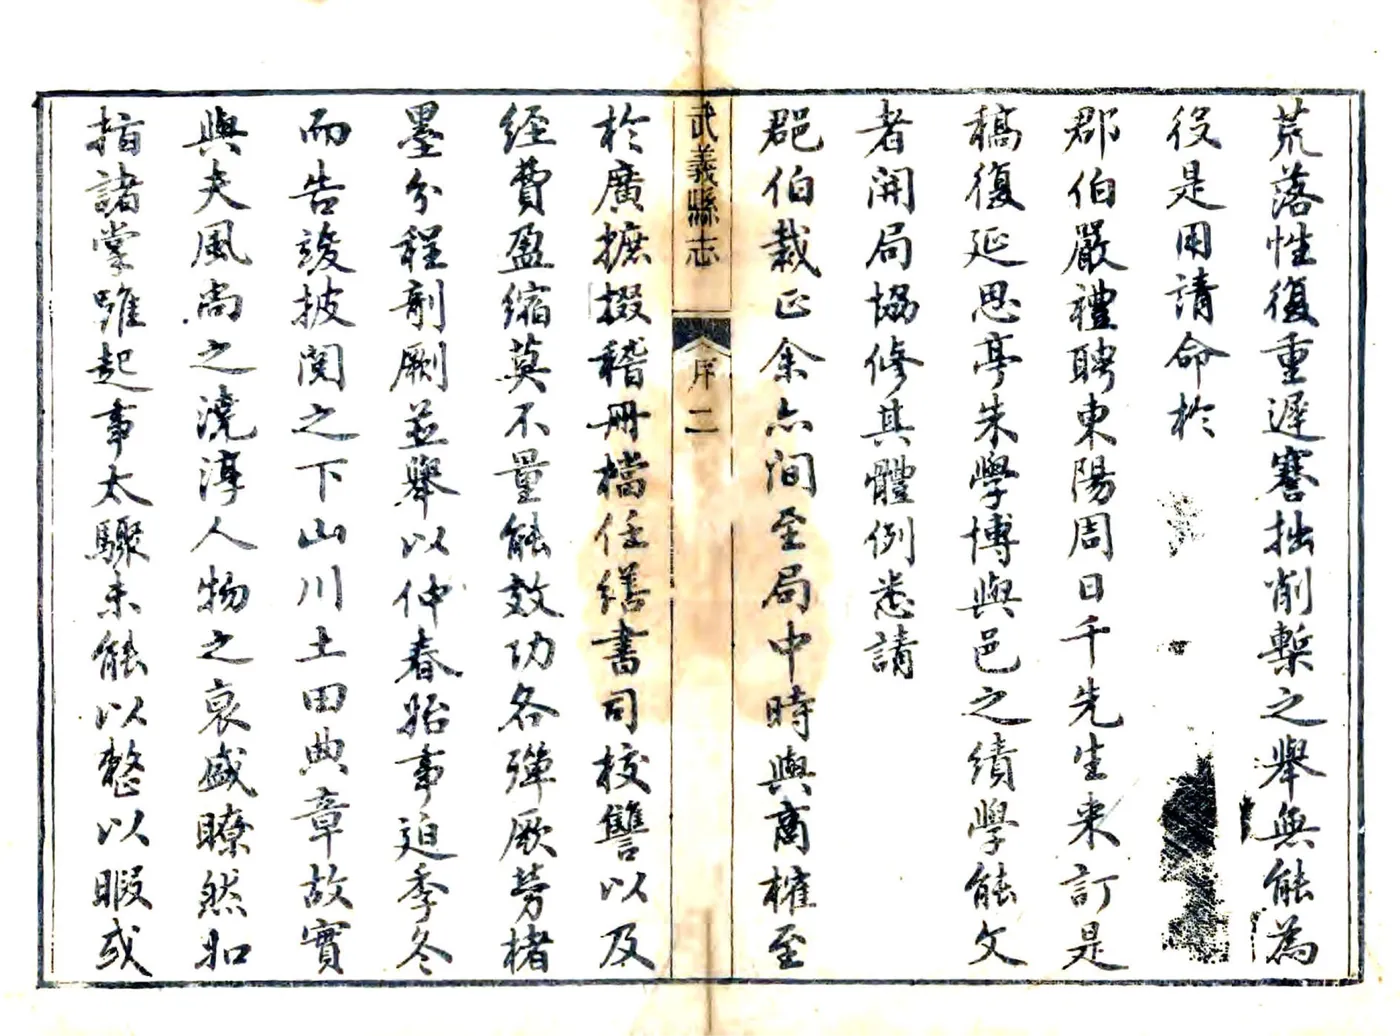 荒落性復重遲謇拙削槧之舉無能為
役是用請命於
郡伯嚴禮聘東陽周日千先生來訂是
稿復延思亭朱學博與邑之績學能文
者開局協修其體例悉請
郡伯裁正余亦間至局中時與商榷至
武義縣志
序
二
於廣摭掇稽冊檔任繕書司校讐以及
經費盈縮莫不量能效功各殫厥勞楮
墨分程剞劂並舉以仲春始事迫季冬
而告竣披閱之下山川土田典章故實
與夫風尚之澆淳人物之衰盛瞭然如
指諸掌雖起事太驟未能以整以暇或